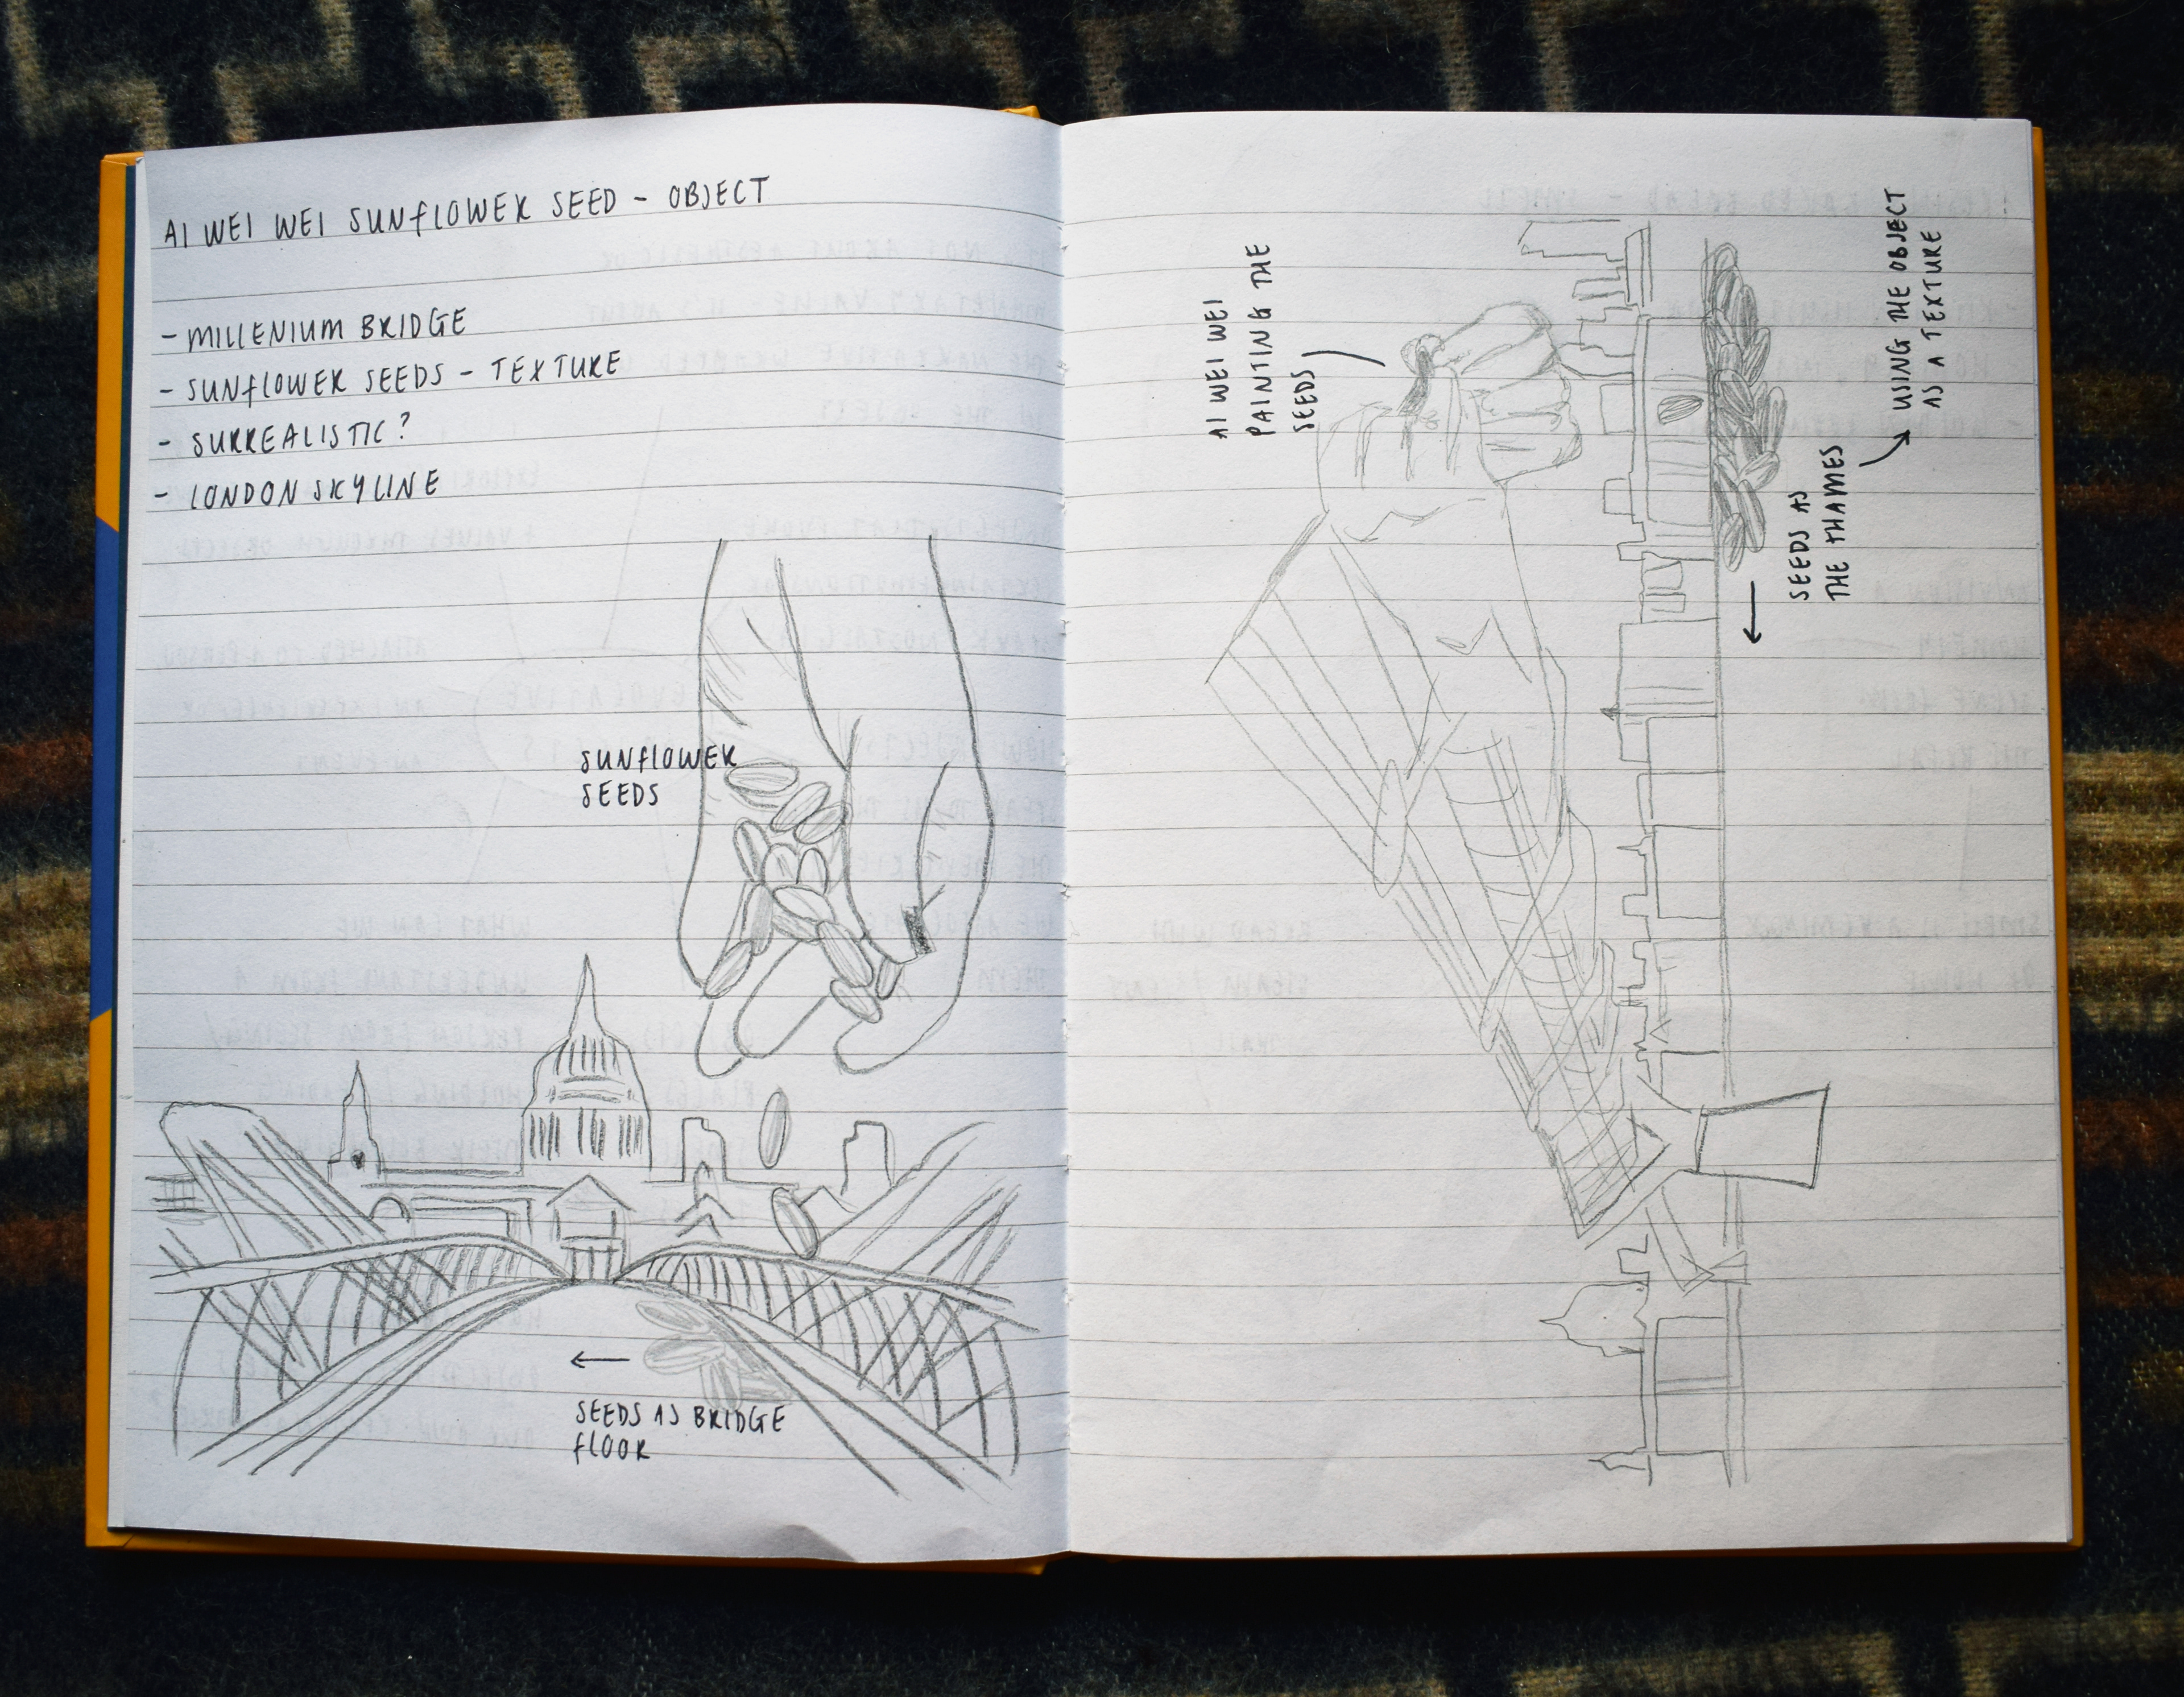 AI WEI WEI SUNFLOWER SEED - OBJECT
- MILLENIUM BRIDGE
- SUNFLOWER SEEDS - TEXTURE
- SURREALISTIC?
- LONDON SKYLINE
SUNFLOWER
SEEDS
SEEDS AS BRIDGE
FLOOR
AI WEI WEI
PAINTING THE
SEEDS
SEEDS AS
THE THAMES
USING THE OBJECT
AS A TEXTURE